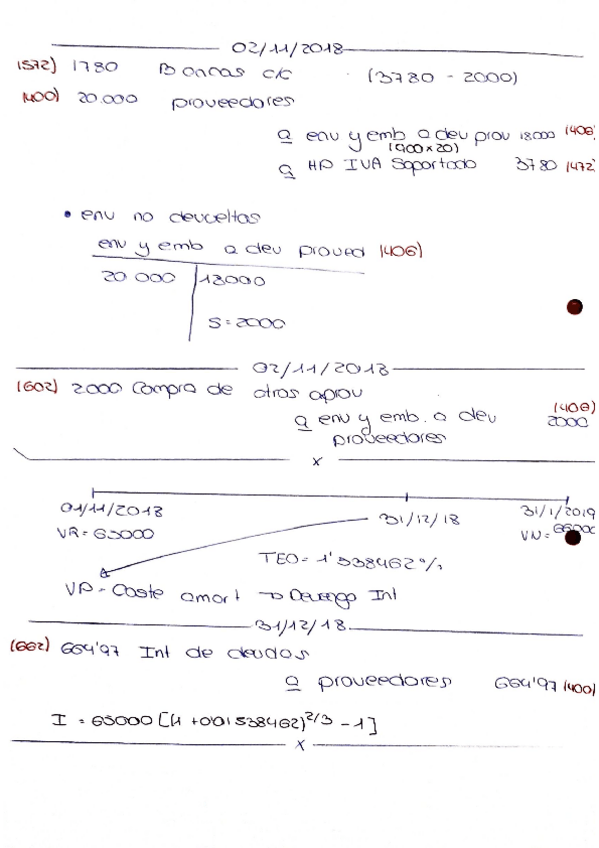 02/11/2018
(572) 1780 Bancos c/c (3780 - 2000)
(400) 20.000 proveedores
a env y emb a dev prov 18000 (406)
(900x20)
a HP IVA Soportado 3780 (472)
• env no devueltas
env y emb a dev proved (406)
20 000 | 18000
S = 2000
02/11/2018
(602) 2000 Compra de otros aprov
a env y emb. a dev proveedores 2000 (406)
x
01/11/2018 31/12/18 31/1/2019
VR = 65000 VN = 66000
TEO = 1'538462%
VP - Coste amort → Devengo Int
31/12/18
(662) 664'97 Int de deudas
a proveedores 664'97 (400)
I = 65000 [(1 + 0'01538462)^2/3 - 1]
x